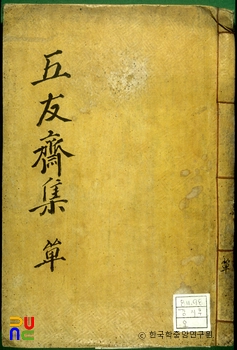 五友齋集 單
單
ⓒ 한국학중앙연구원